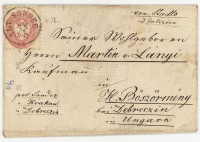 von Stadlo
in Galizien
Seiner Wohlgeboren
Herrn Martin v Lányi
Kaufman
in
H. Böszörmény
per Sandec
Krakau
Debreczin
bei Debreczin
in Ungarn